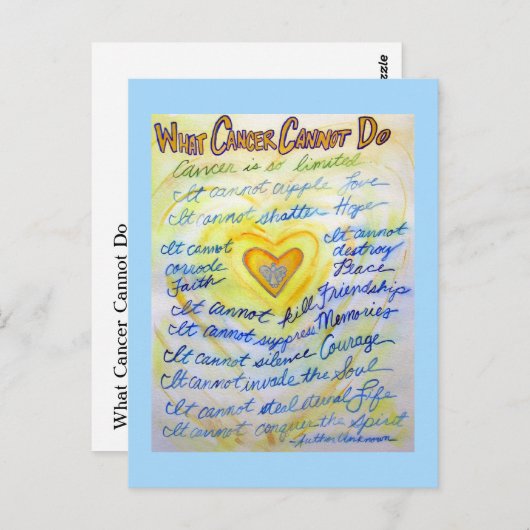 What Cancer Cannot Do
zazzle
WHAT CANCER CANNOT DO
Cancer is so limited...
It cannot cripple Love
It cannot shatter Hope
It cannot
corrode
Faith
It cannot
destroy
Peace
It cannot kill Friendship
It cannot suppress Memories
It cannot silence Courage
It cannot invade the Soul
It cannot steal eternal Life
It cannot conquer the Spirit
-Author Unknown